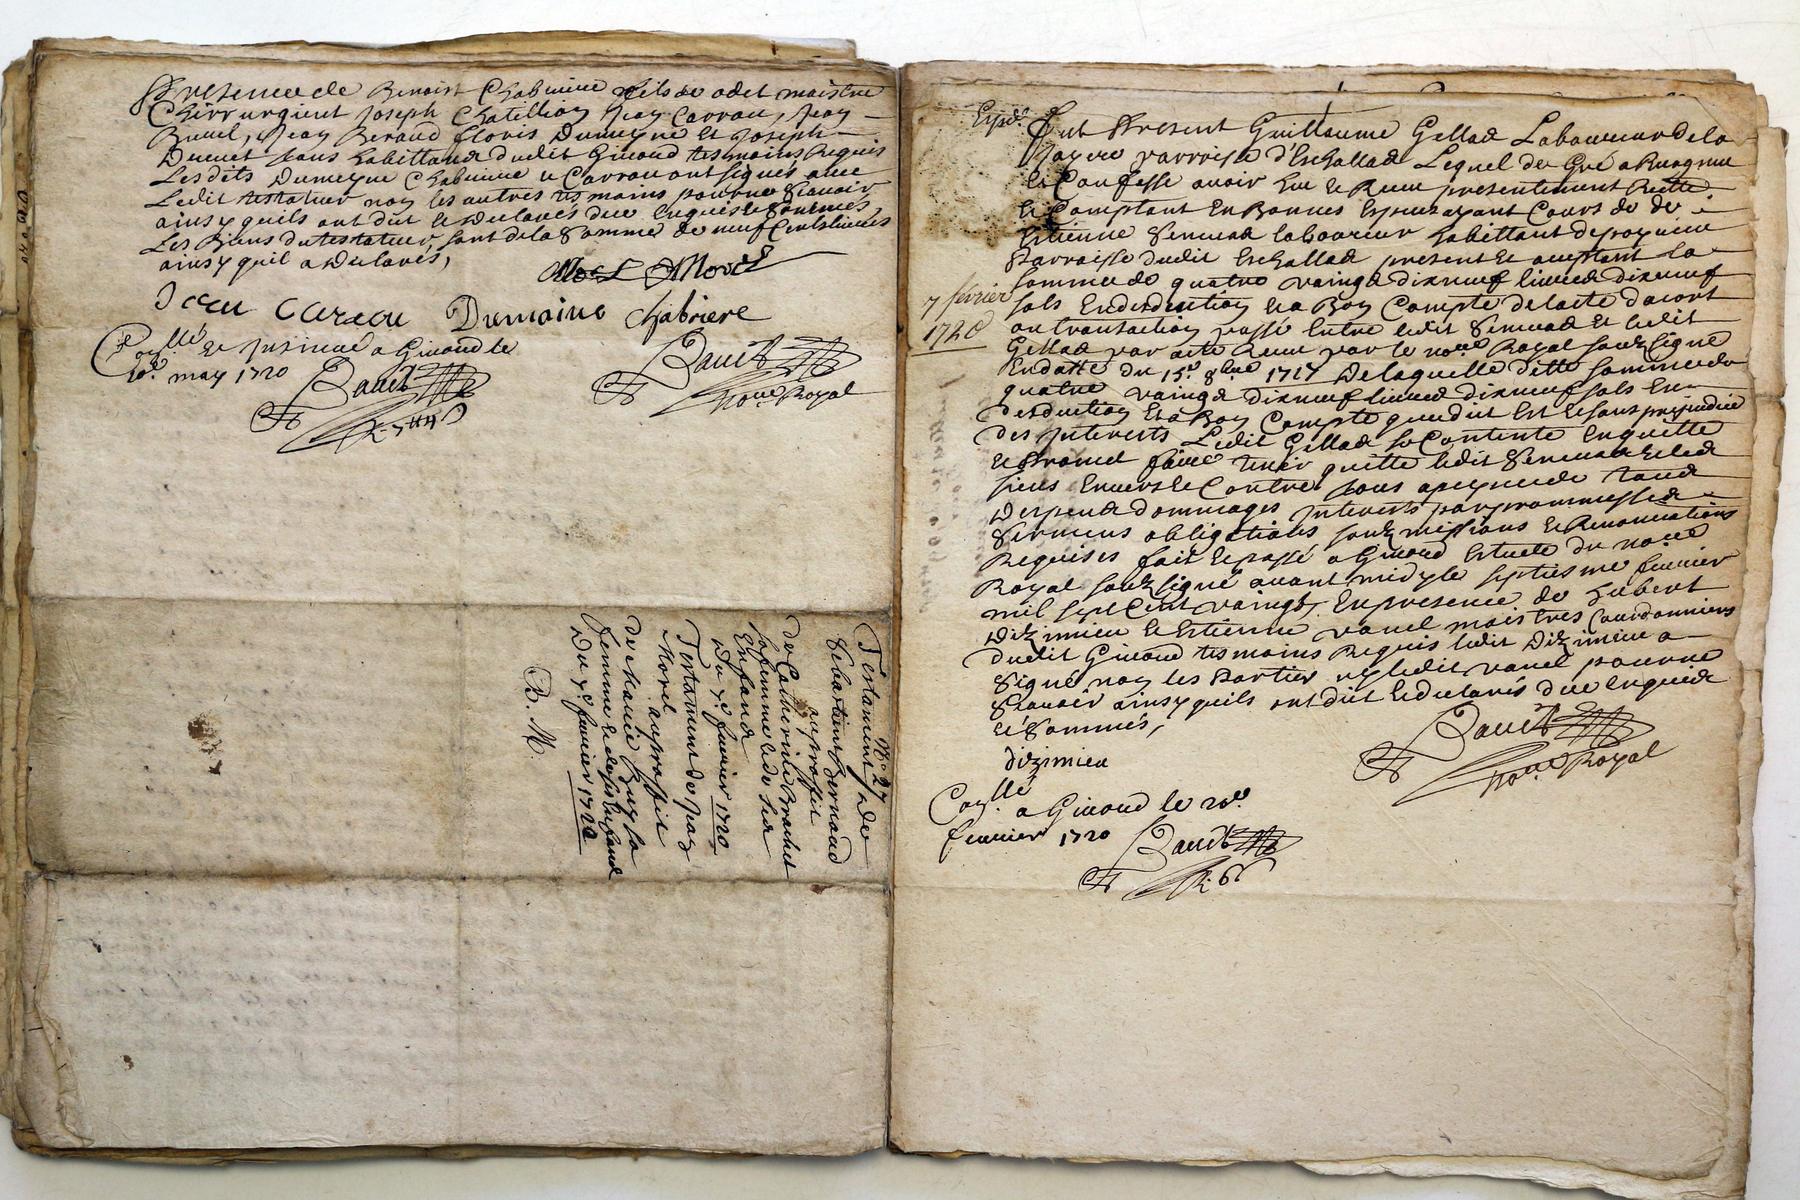 presence de Benoist Chabriere fils de odet maistre
Chirurgient Joseph Chatillion Jean Carrau, Jean
Bruel, Jean Beraud Floris Dumeyne et Joseph
Ducret tous habittants dudit Giuord tesmoins Requis
Les dits Dumeyne Chabriere et Carrau ont signés avec
Ledit testateur non les autres tesmoins pour ne Scauoir
ainsy quils ont dit et declarés due Enquis et Sommés
Les Biens du testateur, sont de la Somme de neuf Cents livres
ainsy quil a declarés,
Morel
Jean Careau Dumaine Chabriere
Con.llé et Insinué a Giuord le
may 1720
no.re Royal
N.o 27
Testament de
Sebastien Bernaud
au proffit
de Catherine Brachet
sa femme et de ses
Enfans
du 7.e feurier 1720
Testament de Jean
Morel au proffit
de Marie Guy sa
femme et de ses Enfans
Du 7.e feurier 1720
B. M
Exp.d
7 février
1720
Fut Present Guillaume Gellas Laboureur de la
parroisse d'Eschallas Lequel de Gré a Recogneu
et Confesse auoir Eu et Receu presentement
et Comptant En Bonnes Especes ayant Cours de
Estienne Seruas laboureur habittant
Parroisse dudit Eschallas present et aceptant la
somme de quatre vaingts dixneuf livres dixneuf
sols En desduction et a Bon Compte de lacte dacort
ou transaction passé Entre ledit Seruas et ledit
Gellas par acte Receu par le no.re Royal soubsigné
En datte du 15.e 8bre 1717 De laquelle ditte somme de
quatre vaingts dixneuf livres dixneuf sols En
desduction et a Bon Compte que dit Est et sans prejudice
des Interests Ledit Gellas se Contente En quitte
et Promet faire tenir quitte ledit Seruas et les
siens Enuers et Contre tous a peyne de tous
despens dommages Interests par promesses
Serments obligations soubzmissions et Renonciations
Requises fait et passé a Giuord Estude du no.re
Royal soubsigné auant midy le septiesme feurier
mil sept Cent vaingt, En presence de hubert
Dizimieu et Estienne vanel maistres Cordonniers
dudit Giuord tesmoins Requis ledit Dizimieu a
Signé non les Parties ny ledit vanel pour ne
Scauoir ainsy quils ont dit et declarés due Enquis
et Sommés,
dizimieu
no.re Royal
Con.llé
a Giuord le 20.e
feurier 1720